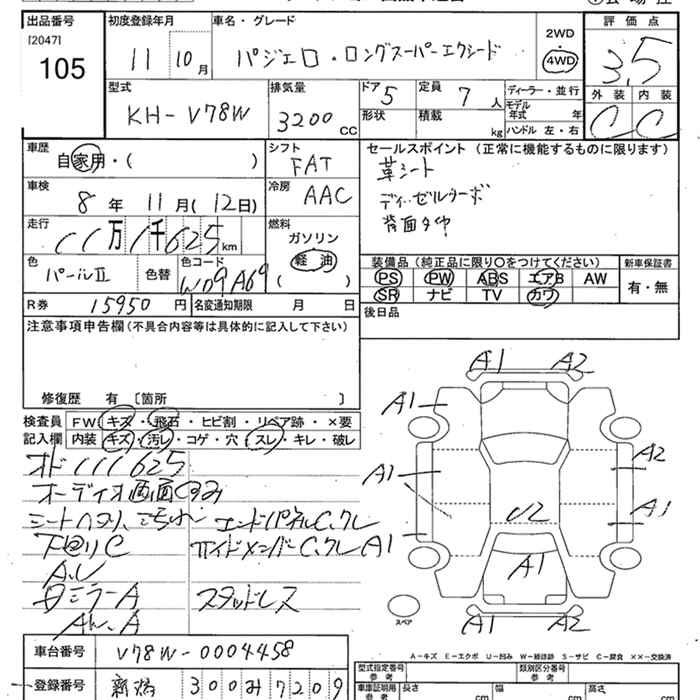 出品番号 初度登録年月 車名・グレード 2WD 評価点
[2047] 11 10月 パジェロ・ロングスーパーエクシード 4WD 3.5
105
型式 排気量 ドア 5 定員 7人 ディーラー・並行 外装 内装
KH-V78W 3200CC 形状 積載 kg モデル年式 年 C C
ハンドル 左・右
車歴 シフト セールスポイント (正常に機能するものに限ります)
自家用・( ) FAT 革シート
車検 冷房 ディーゼルターボ
8年 11月(12日) AAC 背面タイヤ
走行 燃料
11万1千625km ガソリン
色 色替 色コード 軽油 装備品 (純正品に限り○をつけてください) 新車保証書
パールⅡ W09A69 ( ) PS PW ABS エアB AW 有・無
R券 15950円 名変通知期限 月 日 SR ナビ TV カワ
注意事項申告欄(不具合内容等は具体的に記入して下さい) 後日品
修復歴 有 [箇所 ]
A1 A2
検査員 FW キズ・飛石・ヒビ割・リペア跡・×要 A1
記入欄 内装 キズ・汚レ・コゲ・穴・スレ・キレ・破レ
オド111625 A2
オーディオ画面 A1
エンドパネルC,クレ U2 A1
下回りC サイドメンバーC,クレ A1
A1
ミラーA スタッドレス
A1 A2
スペア
車台番号 V78W-0004458
A-キズ E-エクボ U-凹み W-補修跡 S-サビ C-腐食 ××-交換済
登録番号 新潟 300み7209 型式指定番号 参考 類別区分番号 参考
車庫証明用 参考 長さ cm 幅 cm 高さ cm